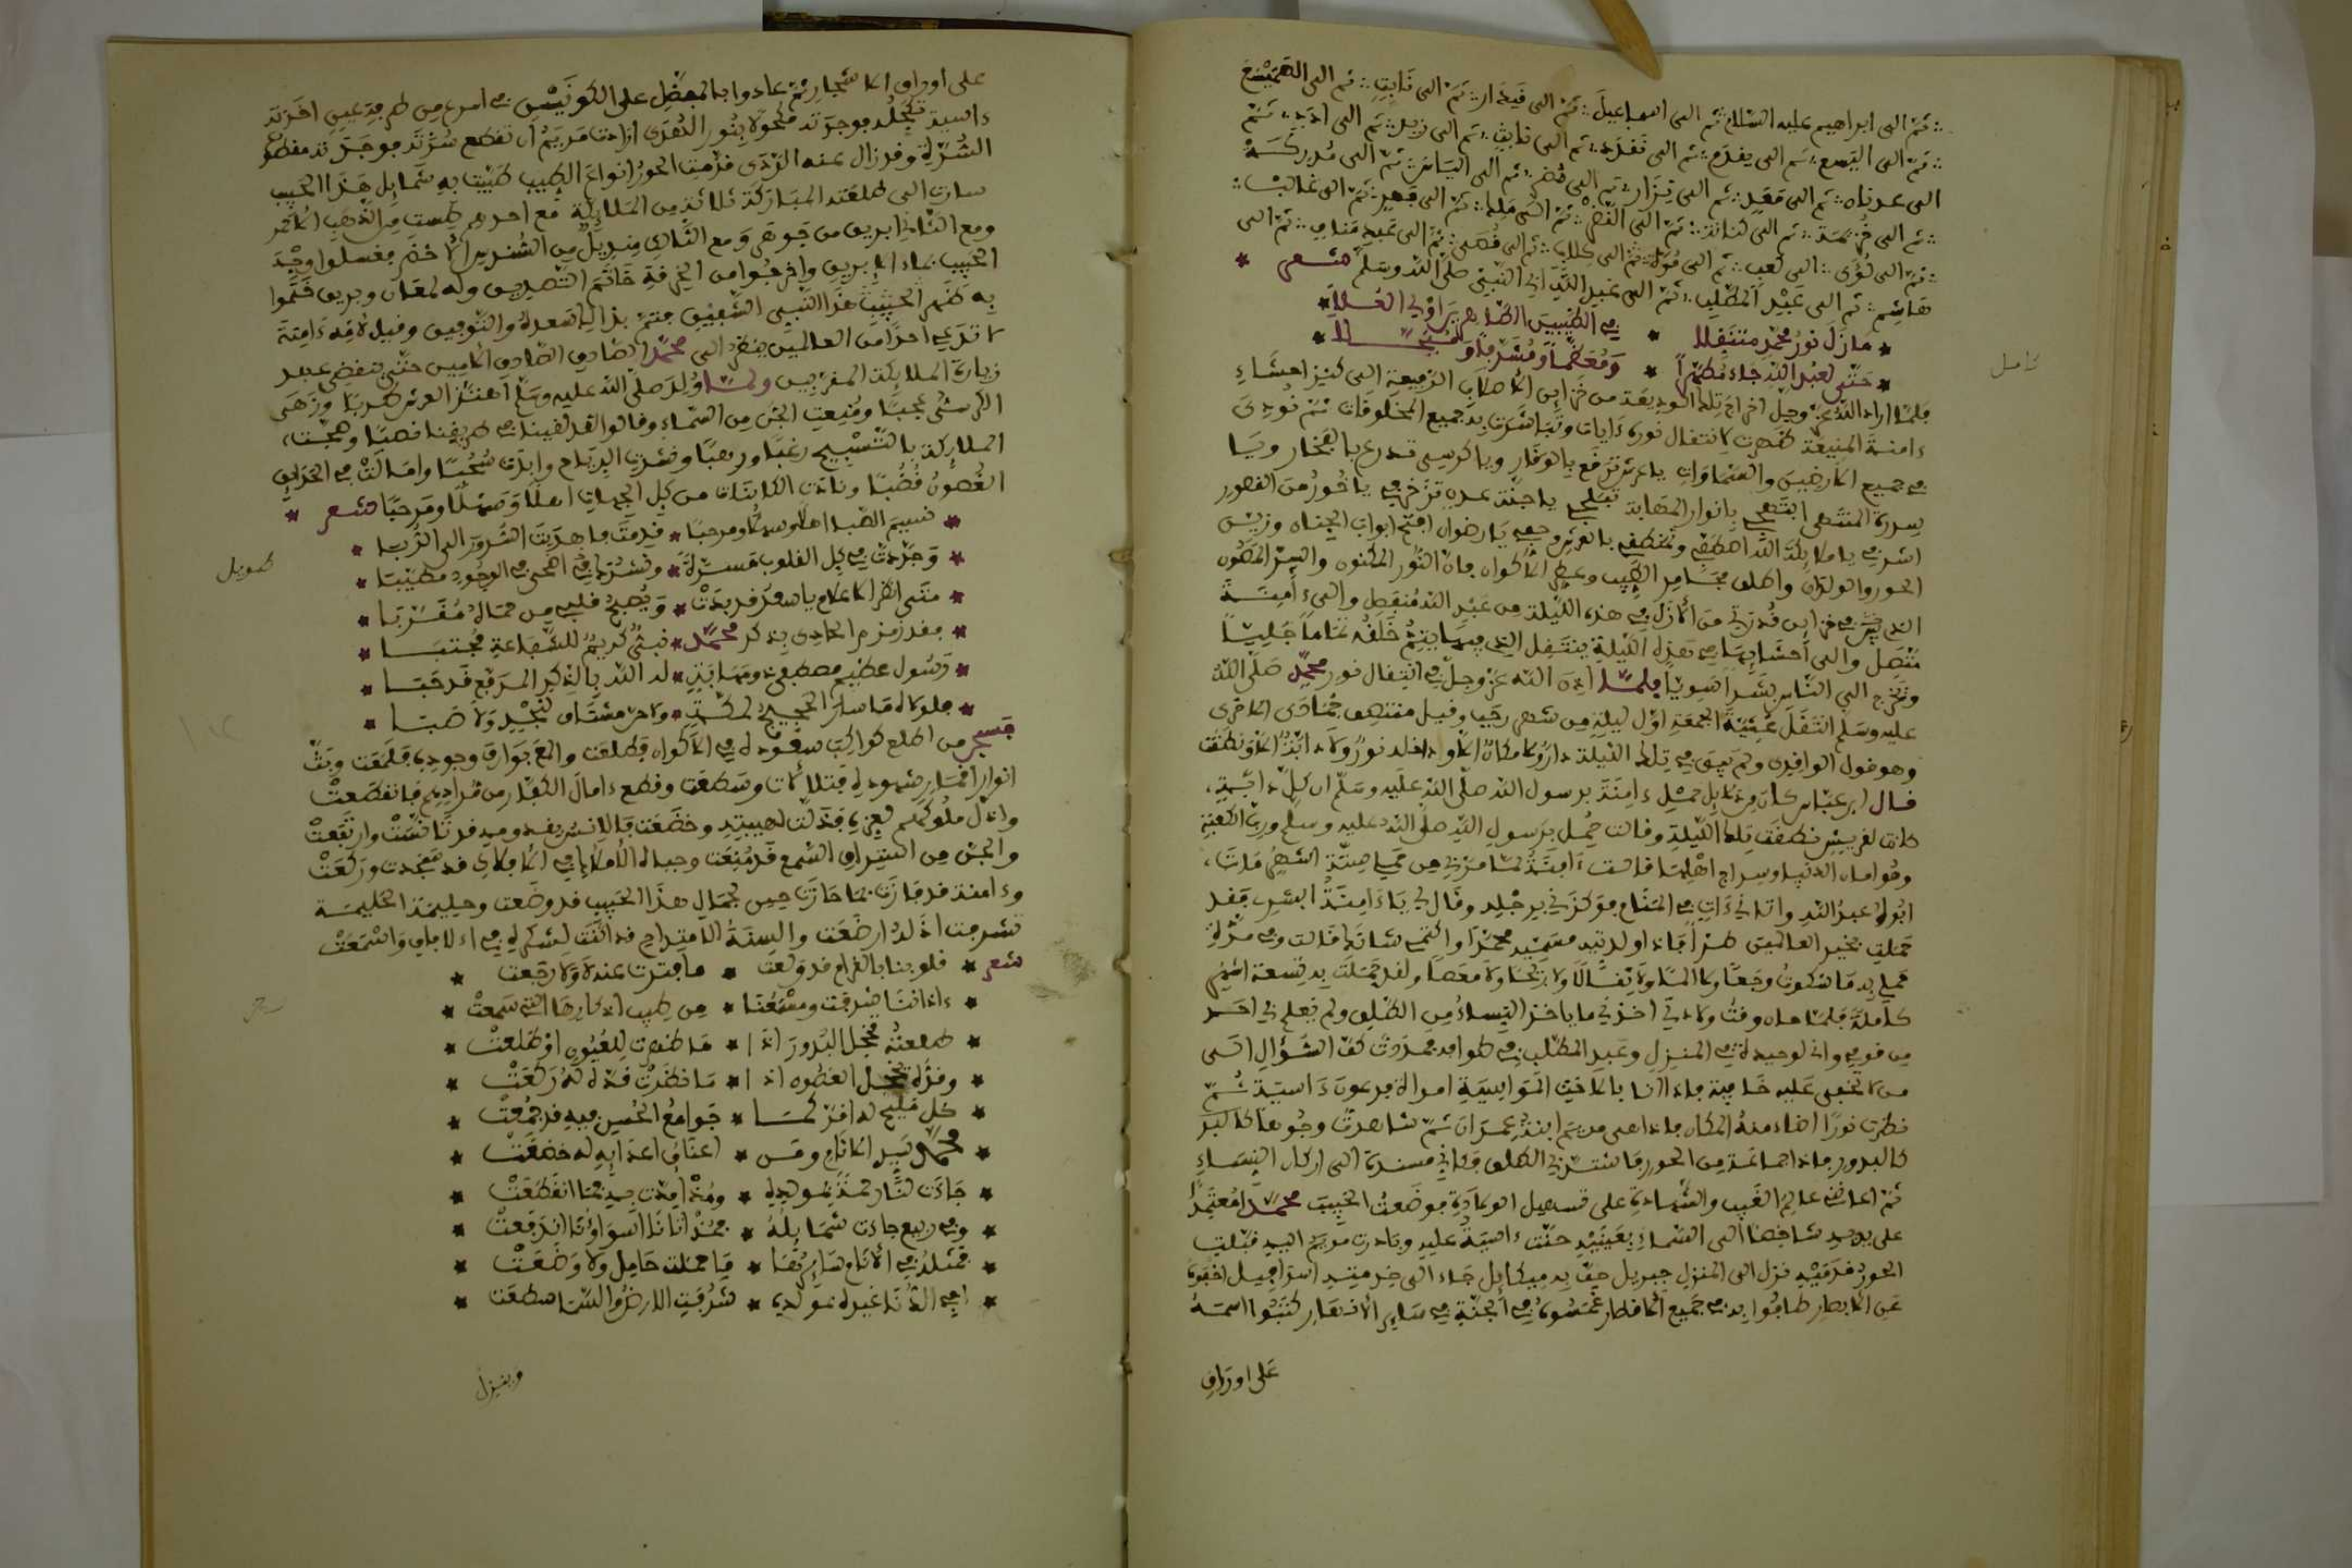 ثم الى ابراهيم عليه السلام ثم الى اسماعيل ثم الى قيدار ثم الى نابت ثم الى الهميسع
ثم الى اليسع ثم الى يقدم ثم الى ثم الى نابت ثم الى زيد ثم الى ادد ثم
الى عدنان ثم الى معد ثم الى نزار ثم الى مضر ثم الى الياس ثم الى مدركة
ثم الى خزيمة ثم الى كنانة ثم الى النضر ثم الى ملك ثم الى فهر ثم الى غالب
ثم الى لؤى الى كعب ثم الى مرة ثم الى كلاب ثم الى قصى ثم الى عبد مناف ثم الى
هاشم ثم الى عبد المطلب ثم الى عبد الله ابي النبي صلى الله وسلم شعر
مازل نور محمد متنقلا في الطيبين الطاهرين اولي العلا
حتى لعبد الله جاء مطهرا ومعظما ومشرفا و
كامل
فلما اراد الله عز وجل اخراج تلك الوديعة من خزاين الاصلاب الرفيعة الى كنيز احشاء
ءامنة المنيعة ظهرت لانتقال نوره ءايات وتباشرت به جميع المخلوقات ثم نودي
في جميع الارضين والسماوات يا عرش ترفع بالوقار ويا كرسى تدرع بالفخار ويا
سدرة المنتهى ابتهجي بانوار المهابة تبلجي يا جنة عدن تزخرفي يا حور من القصور
اشرفي يا ملائكة الله اصطفي و بالعرش وحفي يا رضوان افتح ابواب الجنان وزين
الحور والولدان واطلق مجامر الطيب وعطر الاكوان فان النور المكنون والسر المصون
الذي في خزاين قدرتي من الازل في هذه الليلة من عبد الله منفصل والى امنة
متصل والى احشايها في هذه الليلة ينتقل الذي فيها يتم خلقه تماما جليا
ونخرج الى الناس بشرا سويا فلما اذن الله عز وجل في انتقال نور محمد صلى الله
عليه وسلم انتقل عشية الجمعة اول ليلة من شهر رجب وقيل منتصف جمادى الاخرى
وهو قول الواقدي ولم يبق في تلك الليلة دار ولا مكان الا ودخله نور ولا دابة الا ونطقت
قال ابن عباس كان من دلايل حمل ءامنة برسول الله صلى الله عليه وسلم ان كل دابة
كانت لقريش نطقت تلك الليلة وقالت حمل برسول الله صلى الله عليه وسلم ورب الكعبة
وهو امان الدنيا وسراج اهلها قالت ءامنة لما مر بي من حملي ستة اشهر مات
ابوه عبد الله واتاني ءات في المنام فوكزني برجله وقال لي يا ءامنة ابشري فقد
حملت بخير العالمين طرا فاذا ولدتيه فسميه محمدا واكتمي شانك قالت وفي مدة
حملي به ما شكوت وجعا ولا الما ولا ثقلا ولا ريحا ولا مغصا ولقد حملت به تسعة اشهر
كاملة فلما حان وقت ولادتي اخذني ما ياخذ النساء من الطلق ولم يعلم بي احد
من قومي واني لوحيدة في المنزل وعبد المطلب في طوافه فمددت كف السؤال الى
من لا تخفى عليه خافية فاذا انا بالاخت المواسية امراة فرعون ءاسية ثم
نظرت نورا اضاء منه المكان فاذا هي مريم ابنة عمران ثم شاهدت وجوها كالبدر
كالبدور فاذا جماعة من الحور فاشتد بي الطلق وكاني مسندة الى اركان النساء
ثم اعانني عالم الغيب والشهادة على تسهيل الولادة فوضعت الحبيب محمدا معتمدا
على يديه شاخصا الى السماء بعينيه حنت ءاسية عليه وبادرت مريم اليه قبلت
الحور قدميه نزل الى المنزل جبريل حف به ميكايل جاء الى خدمته اسرافيل اخفوه
عن الابصار طافوا به في جميع الاقطار غمسوه في الجنة في ساير الانهار كتبوا اسمه
على اوراق
على اوراق الاشجار ثم عادوا بالمفضل على الكونين في اسرع من طرفة عين اخذته
ءاسية تكحله فوجدته مكحولا بنور الهدى ارادت مريم ان تقطع سرته فوجدته مقطوع
السرة وقد زال عنه الردى قدمت الحور انواع الطيب طيبت به شمايل هذا الحبيب
سارت الى طلعته المباركة ثلاثة من الملايكة مع احدهم طست من الذهب الاحمر
ومع الثاني ابريق من جوهر ومع الثالث منديل من السندس الاخضر فغسلوا وجه
الحبيب بماء الابريق واخرجوا من الخرقة خاتم التصديق وله لمعان وبريق ختموا
به ظهر الحبيب هذا النبي الشفيق فتم بذالك سعده والتوفيق وقيل لامه ءامنة
لا تدعي احدا من العالمين ينظر الى محمد الصادق الامين حتى تنقضى عنه
زيارة الملايكة المقربين ولما ولد صلى الله عليه وسلم اهتز العرش طربا وزهى
الكرسى عجبا ومنعت الجن من السماء وقالوا لقد لقينا في طريقنا نصبا وضجت
الملايكة بالتسبيح رغبا ورهبا ونشرت الرياح وابدت سحبا وامالت في الحدايق
الغصون قضبا ونادت الكاينات من كل الجهات اهلا وسهلا ومرحبا شعر
نسيم الصبا اهلا وسهلا ومرحبا قدمت فاهديت السرور الى الربا
طويل
وجددت في كل القلوب مسرة ونشرك اضحى في الوجود مطيبا
متى انظر الاعلام يا سعد قد بدت ويصبح قلبي من حماك مقربا
فقد زمزم الحادى بذكر محمد نبي كريم للشفاعة مجتبا
رسول عظيم مصطفى ومهابة له الله بالذكر المرفع قد حبا
فلولاه ما سار الحجيج لمكة ولا حن مشتاق لنجد ولا صبا
فسبحن من اطلع كواكب سعوده في الاكوان فطلعت والمع بوارق وجوده فلمعت وبث
انوار اقمار شهوده فتلالات وسطعت وقطع ءامال الكفار من مرادهم فانقطعت
واذل ملوكهم لعزه فذلت لهيبته وخضعت فالانس بقدومه قد تانست وارتفعت
والجن من استراق السمع قد منعت وجباه الاملاك في الافلاك قد سجدت وركعت
وءامنة قد فازت بما حازت حين بجمال هذا الحبيب قد وضعت وحليمة الحليمة
تشرفت اذ له ارضعت والسنة الامتداح قد اثنت لشكره في الافاق واسمعت
شعر قلوبنا بالغرام قد ولعت ما فترت عنه لا ولا رجعت
ءاذاننا شرفت ومسمعنا من طيب اذكارها التي سمعت
طلعته مخجل البدور اذا ما ظهرت للعيون او طلعت
وقده مخجل الغصون اذا ما نظرت قده له ركعت
كل مليح له اقر كما جوامع الحسن فيه قد جمعت
محمد سيد الانام ومن اعناق اعدايه له خضعت
جاءت لنا رحمة بمولده ومذ اتت فيه عنا انقطعت
وفي ربيع جاءت شمايله فمذ اتانا اسواؤنا اندفعت
فمثله في الانام سايرها ما حملت حامل ولا وضعت
شرفت الارض والسما سطعت
وينزل